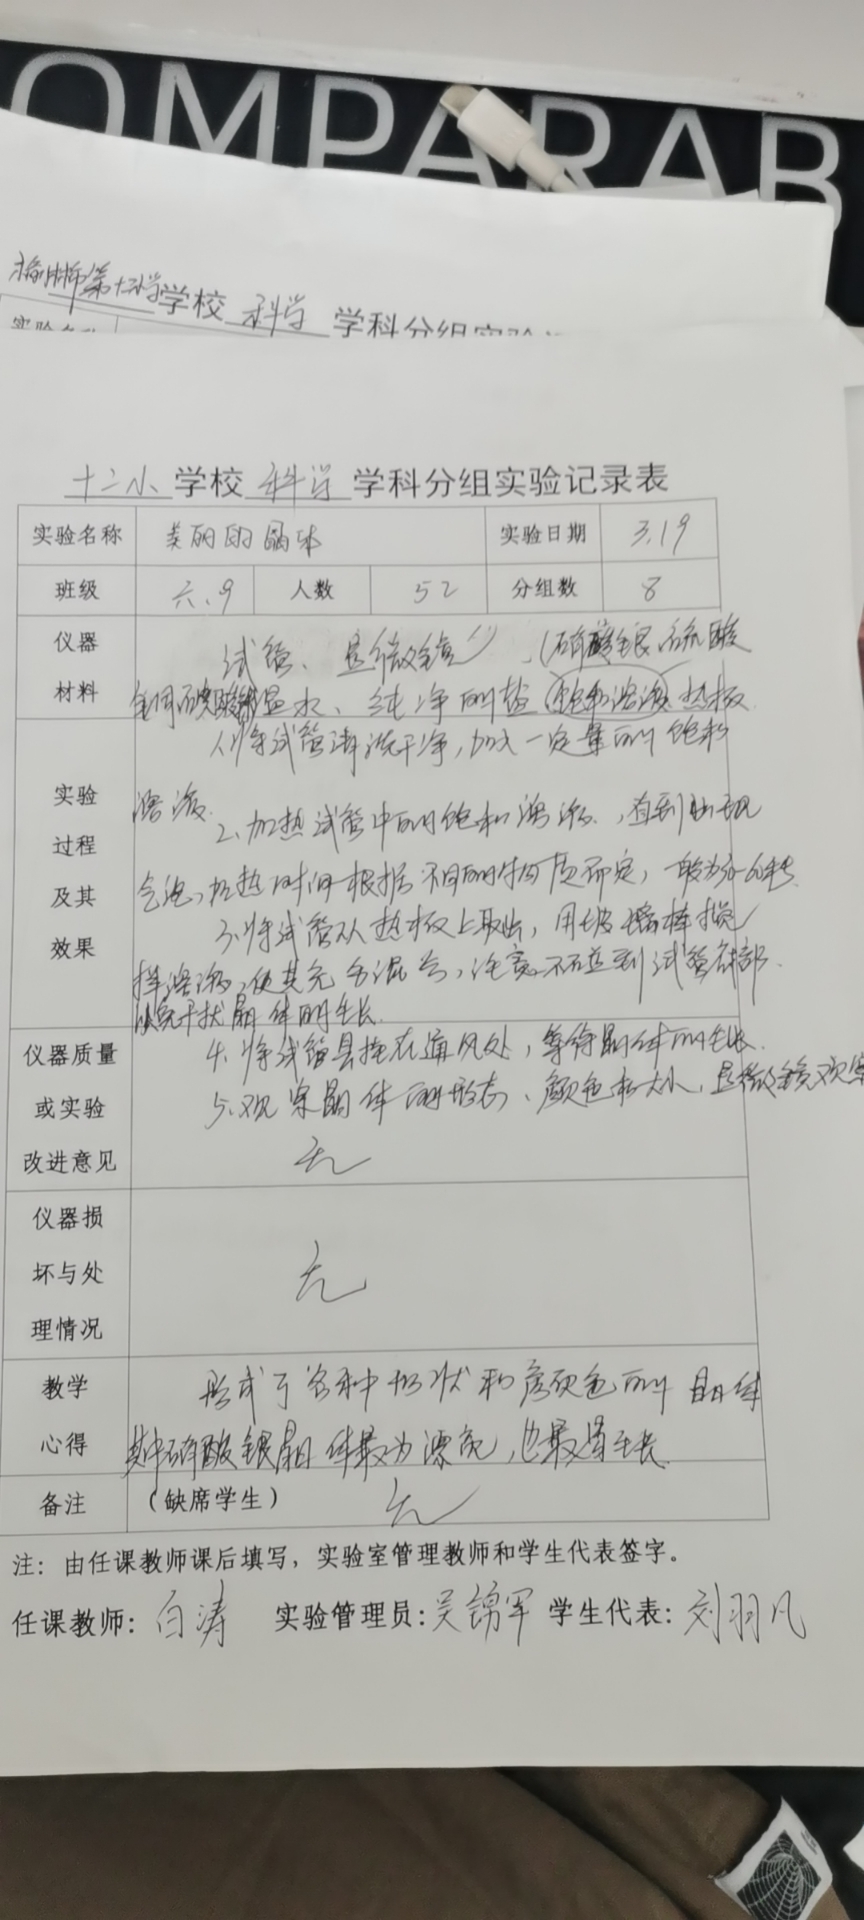 OMPARAB
第十二小学学校 科学 学科分组实验
实验名称
十二小 学校 科学 学科分组实验记录表
实验名称 美丽的晶体 实验日期 3.19
班级 六.9 人数 52 分组数 8
仪器材料 试管、显微镜 (硝酸银、硫酸
温水、纯净的盐(饱和溶液)热板
实验过程及其效果 1.将试管清洗干净,加入一定量的饱和
溶液.
2.加热试管中的饱和溶液,直到出现
气泡,加热时间根据不同的物质而定,一般为30-60秒
3.将试管从热板上取出,用玻璃棒搅
拌溶液,使其充分混合,注意不要碰到试管底部.
以免干扰晶体的生长.
仪器质量或实验改进意见 4.将试管悬挂在通风处,等待晶体的生长.
5.观察晶体的形态、颜色和大小,显微镜观察
无
仪器损坏与处理情况 无
教学心得 形成了各种形状和颜色的晶体
其中硝酸银晶体最为漂亮,也最易生长.
备注 (缺席学生) 无
注:由任课教师课后填写,实验室管理教师和学生代表签字。
任课教师:白涛 实验管理员:吴锦军 学生代表:刘羽凡